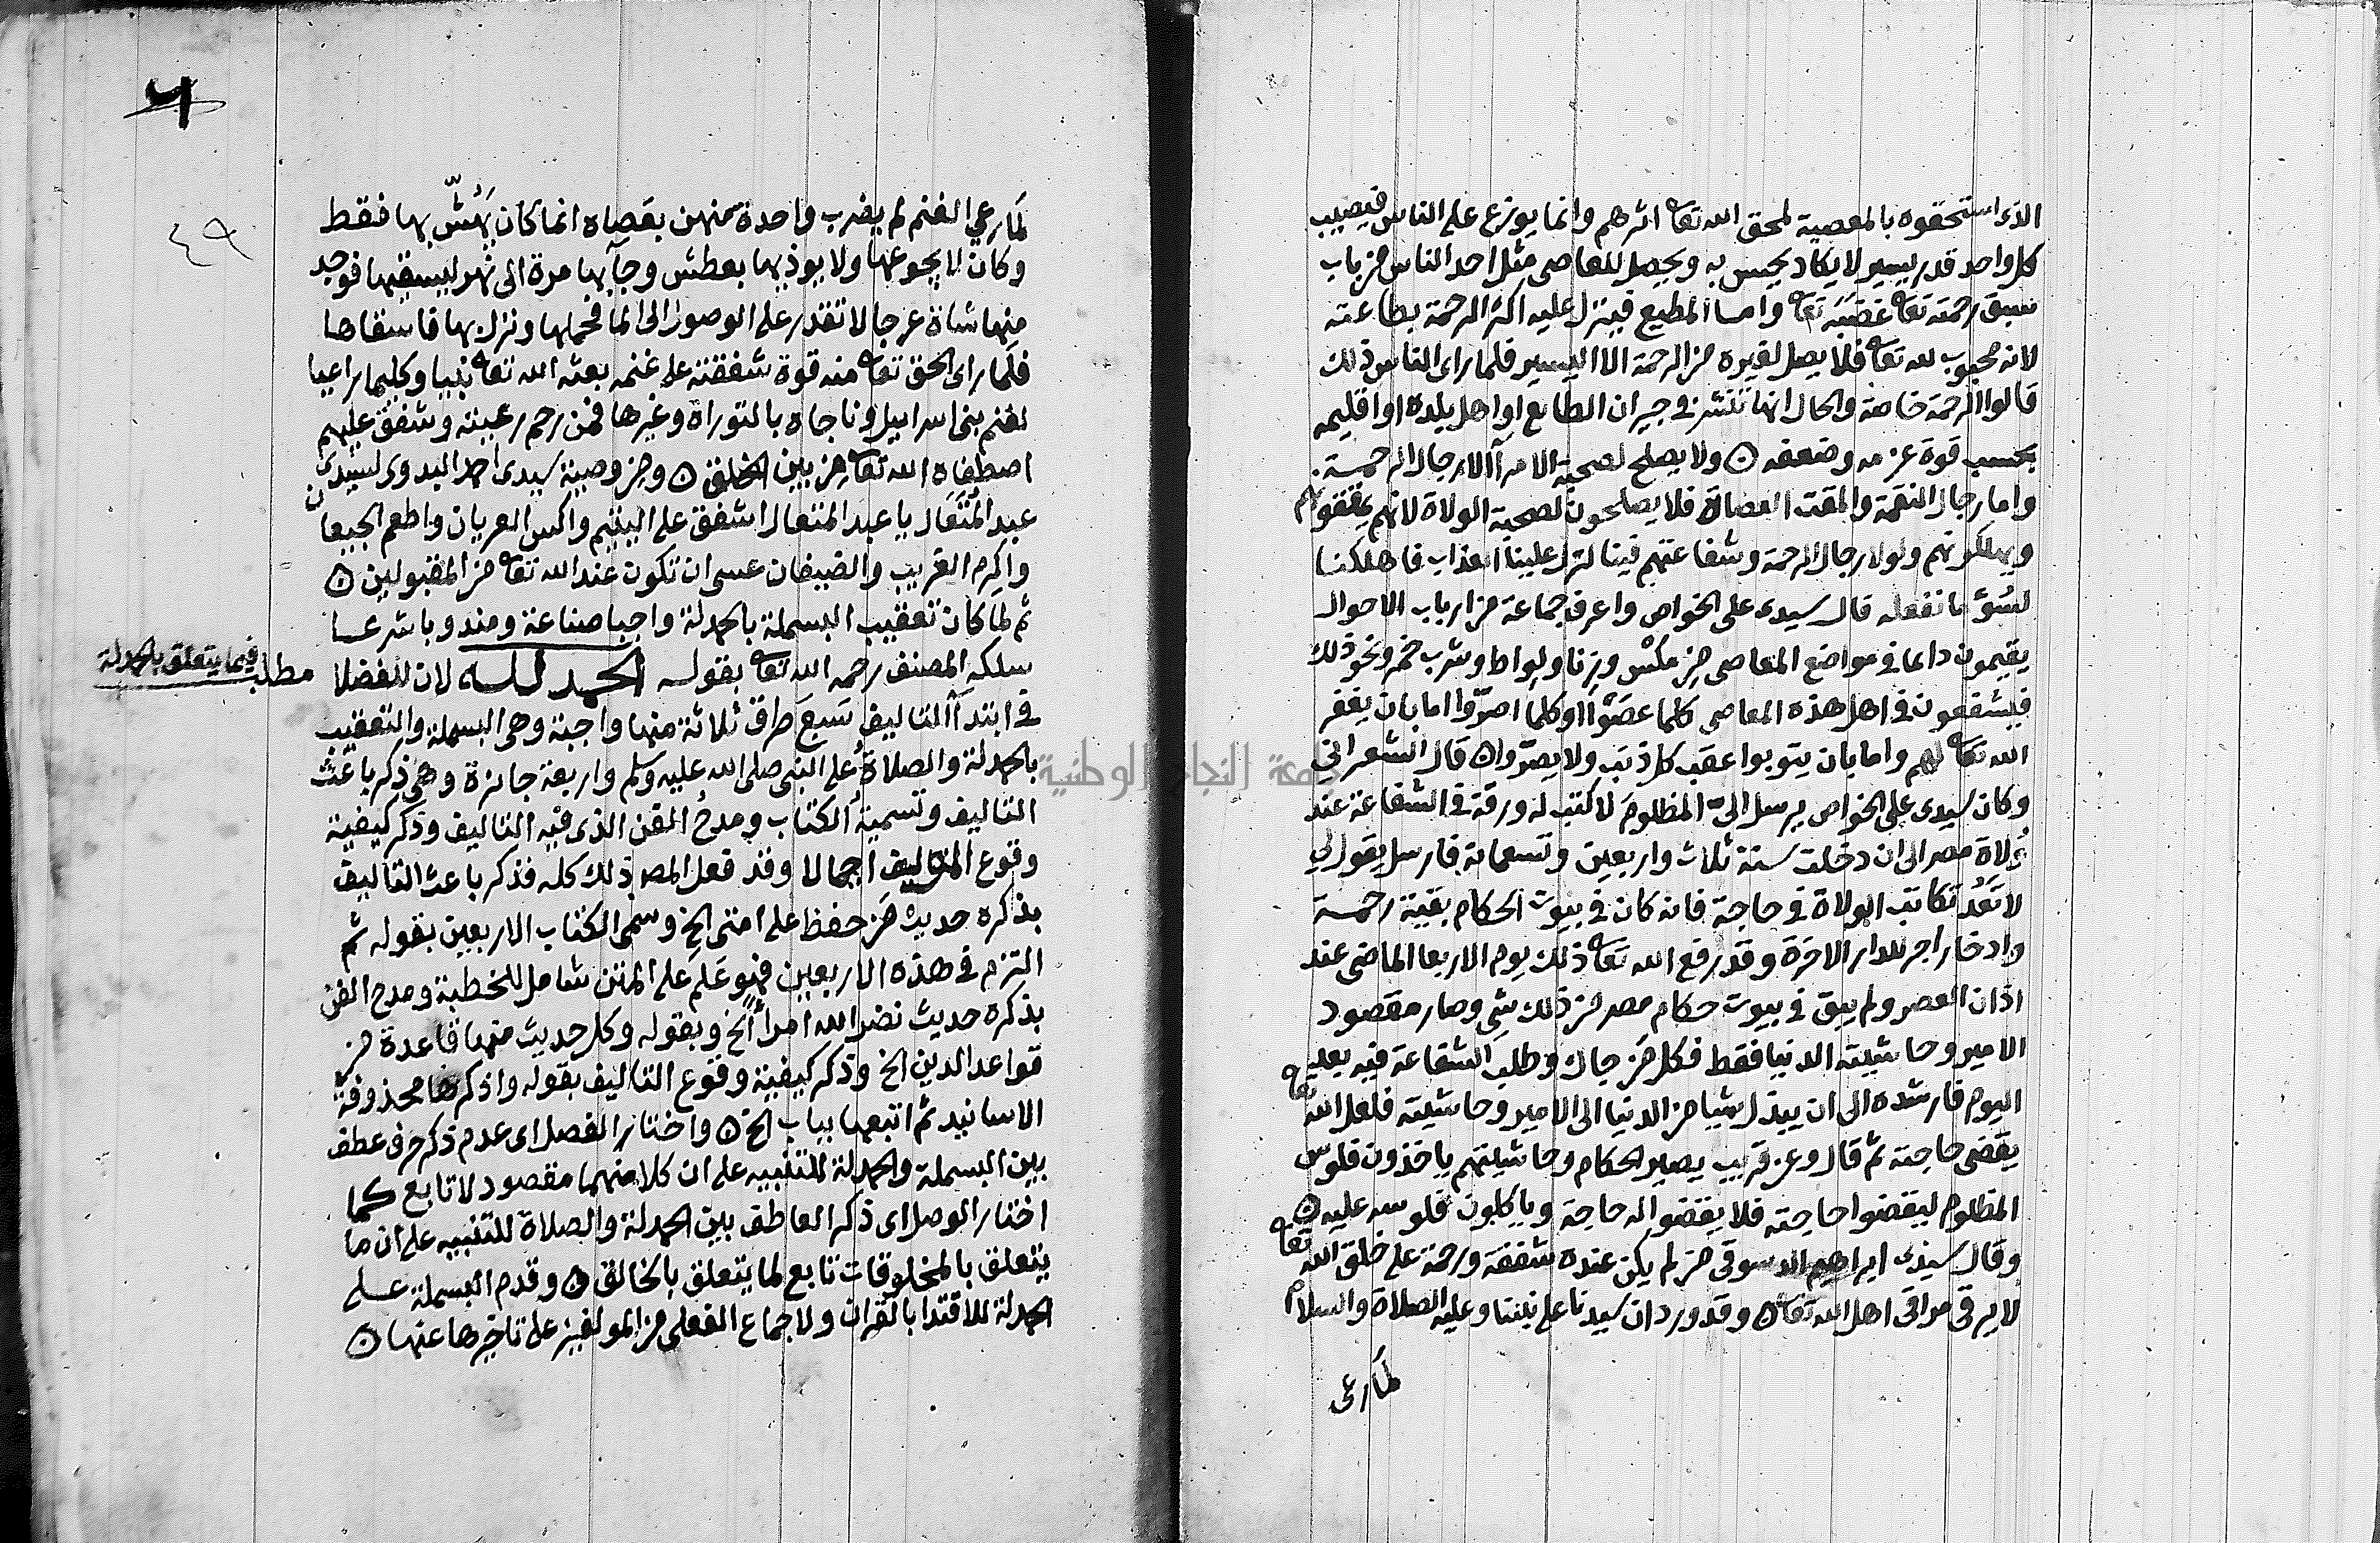 الذى استحقوه بالمعصية لمحق الله تعا اثرهم وانما يوزع على الناس فيصيب
كل واحد قدر يسير لا يكاد يحس به ويحصل للعاصى مثل احد الناس من باب
سبق رحمته تعا غضبه تعا واما المطيع فينزل عليه اكثر الرحمة بطاعته
لانه محبوب لله تعا فلا يصل لغيره من الرحمة الا اليسير فلما راى الناس ذلك
قالوا الرحمة خاصة والحال انها تنتشر فى جيران الطايع او اهل بلده او اقليمه
بحسب قوة عزمه وضعفه ولا يصلح لصحبة الامرآ الا رجال الرحمة
واما رجال النقمة والمقت العصاة فلا يصلحون لصحبة الولاة لانهم يمقتونهم
ويهلكونهم ولولا رجال الرحمة وشفاعتهم فينا لنزل علينا العذاب فاهلكنا
لسوء ما نفعله قال سيدى على الخواص واعرف جماعة من ارباب الاحوال
يقيمون دايما فى مواضع المعاصى من مكس وزنا ولواط وشرب خمر ونحو ذلك
فيشفعون فى اهل هذه المعاصى كلما عصوا او كلما اصروا اما بان يغفر
الله تعا لهم واما بان يتوبوا عقب كل ذنب ولا يصروا قال الشعرانى
وكان سيدى على الخواص يرسل الىّ المظلوم لاكتب له ورقة فى الشفاعة عند
ولاة مصر الى ان دخلت سنة ثلاث واربعين وتسعماية فارسل يقول لى
لا تعد تكاتب الولاة فى حاجة فانه كان فى بيوت الحكام بقية رحمة
وادخار اجر للدار الاخرة وقد رفع الله تعا ذلك يوم الاربعا الماضى عند
اذان العصر ولم يبق فى بيوت حكام مصر من ذلك شى وصار مقصود
الامير وحاشيته الدنيا فقط فكل من جاك وطلب الشفاعة فيه بعد
اليوم فارشده الى ان يبذل شيا من الدنيا الى الامير وحاشيته فلعل الله تعا
يقضى حاجته ثم قال وعن قريب يصير الحكام وحاشيتهم ياخذون فلوس
المظلوم ليقضوا حاجته فلا يقضوا له حاجة وياكلون فلوسه عليه
وقال سيدى ابراهيم الدسوقى من لم يكن عنده شفقة ورحمة على خلق الله تعا
لا يرقى مراقى اهل الله تعا وقد ورد ان سيدنا على نبينا وعليه الصلاة والسلام
لما رعى
٤٩
لما رعي الغنم لم يضرب واحدة منهن بعصاه انما كان يهُشّ بها فقط
وكان لا يجوعها ولا يوذيها بعطش وجآ بها مرة الى نهر ليسقيها فوجد
منها شاة عرجا لا تقدر على الوصول الى الما فحملها ونزل بها فاسقاها
فلما راى الحق تعا منه قوة شفقته على غنمه بعثه الله تعا نبيا وكليما راعيا
لغنم بنى اسراييل وناجاه بالتوراة وغيرها فمن رحم رعيته وشفق عليهم
اصطفاه الله تعا من بين الخلق ومن وصية سيدى احمد البدوى لسيدى
عبد المتعال يا عبد المتعال اشفق على اليتيم واكس العريان واطعم الجيعان
واكرم الغريب والضيفان عسى ان تكون عند الله تعا من المقبولين
ثم لما كان تعقيب البسملة بالحمدلة واجبا صناعة ومندوبا شرعا
سلكه المصنف رحمه الله تعا بقوله الحمد لله لان للفضلا
مطلب فيما يتعلق بالحمدلة
فى ابتدآ التاليف سبع طرق ثلاثة منها واجبة وهى البسملة والتعقيب
بالحمدلة والصلاة على النبى صلى الله عليه وسلم واربعة جائزة وهى ذكر باعث
التاليف وتسمية الكتاب ومدح الفن الذى فيه التاليف وذكر كيفية
وقوع التاليف اجمالا وقد فعل المصر ذلك كله فذكر باعث التاليف
بذكره حديث من حفظ على امتى الخ وسمى الكتاب الاربعين بقوله ثم
التزم فى هذه الاربعين فهو علم على المتن شامل للخطبة ومدح الفن
بذكره حديث نضر الله امرأً الخ وبقوله وكل حديث منها قاعدة من
قواعد الدين الخ وذكر كيفية وقوع التاليف بقوله واذكرها محذوفة
الاسانيد ثم اتبعها بباب الخ واختار الفصل اى عدم ذكر حرف عطف
بين البسملة والحمدلة للتنبيه على ان كلا منهما مقصود لا تابع كما
اختار الوصل اى ذكر العاطف بين الحمدلة والصلاة للتنبيه على ان ما
يتعلق بالمخلوقات تابع لما يتعلق بالخالق وقدم البسملة على
الحمدلة للاقتدا بالقران ولاجماع الفعلى من المولفين على تاخيرها عنها
جامعة النجاح الوطنية